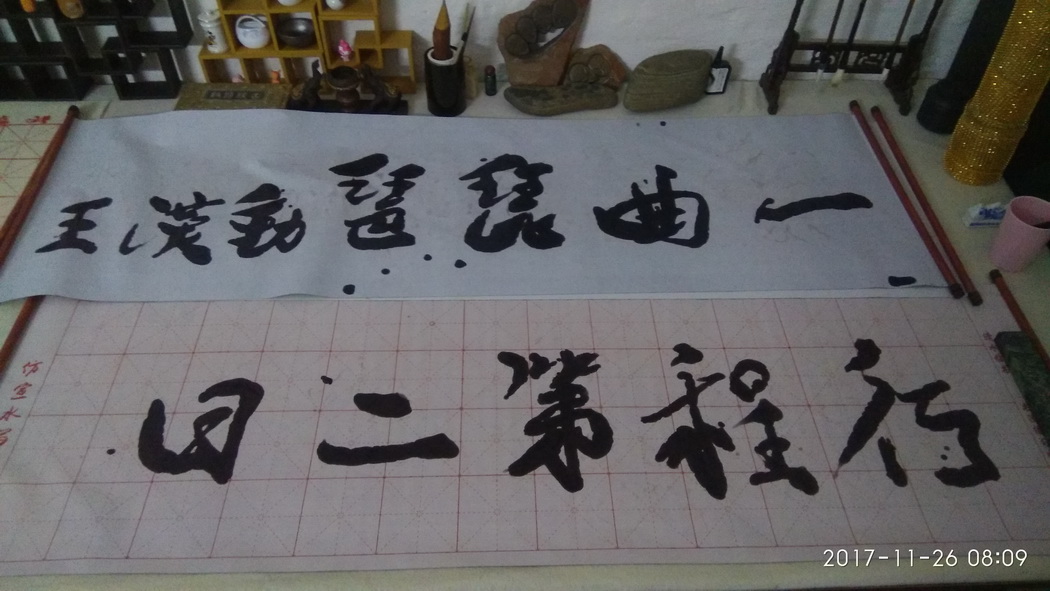 一曲琵琶動漢王
行程第二日
仿宣水写
2017-11-26 08:09